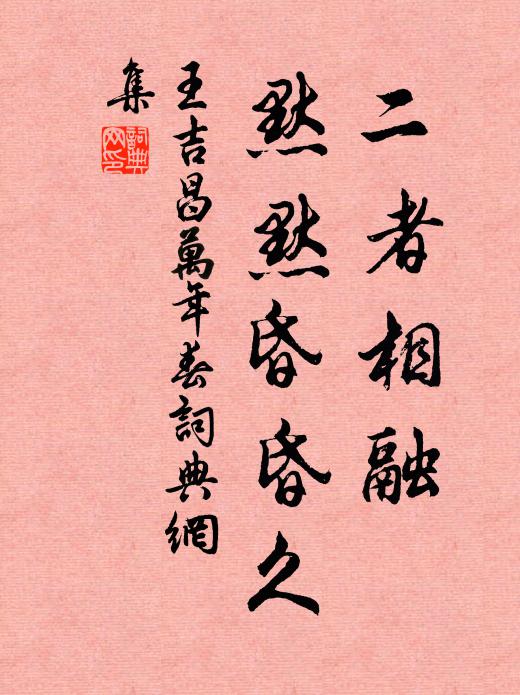 二者相融
默默昏昏久
王吉昌萬年春詞典網
集
詞典網印